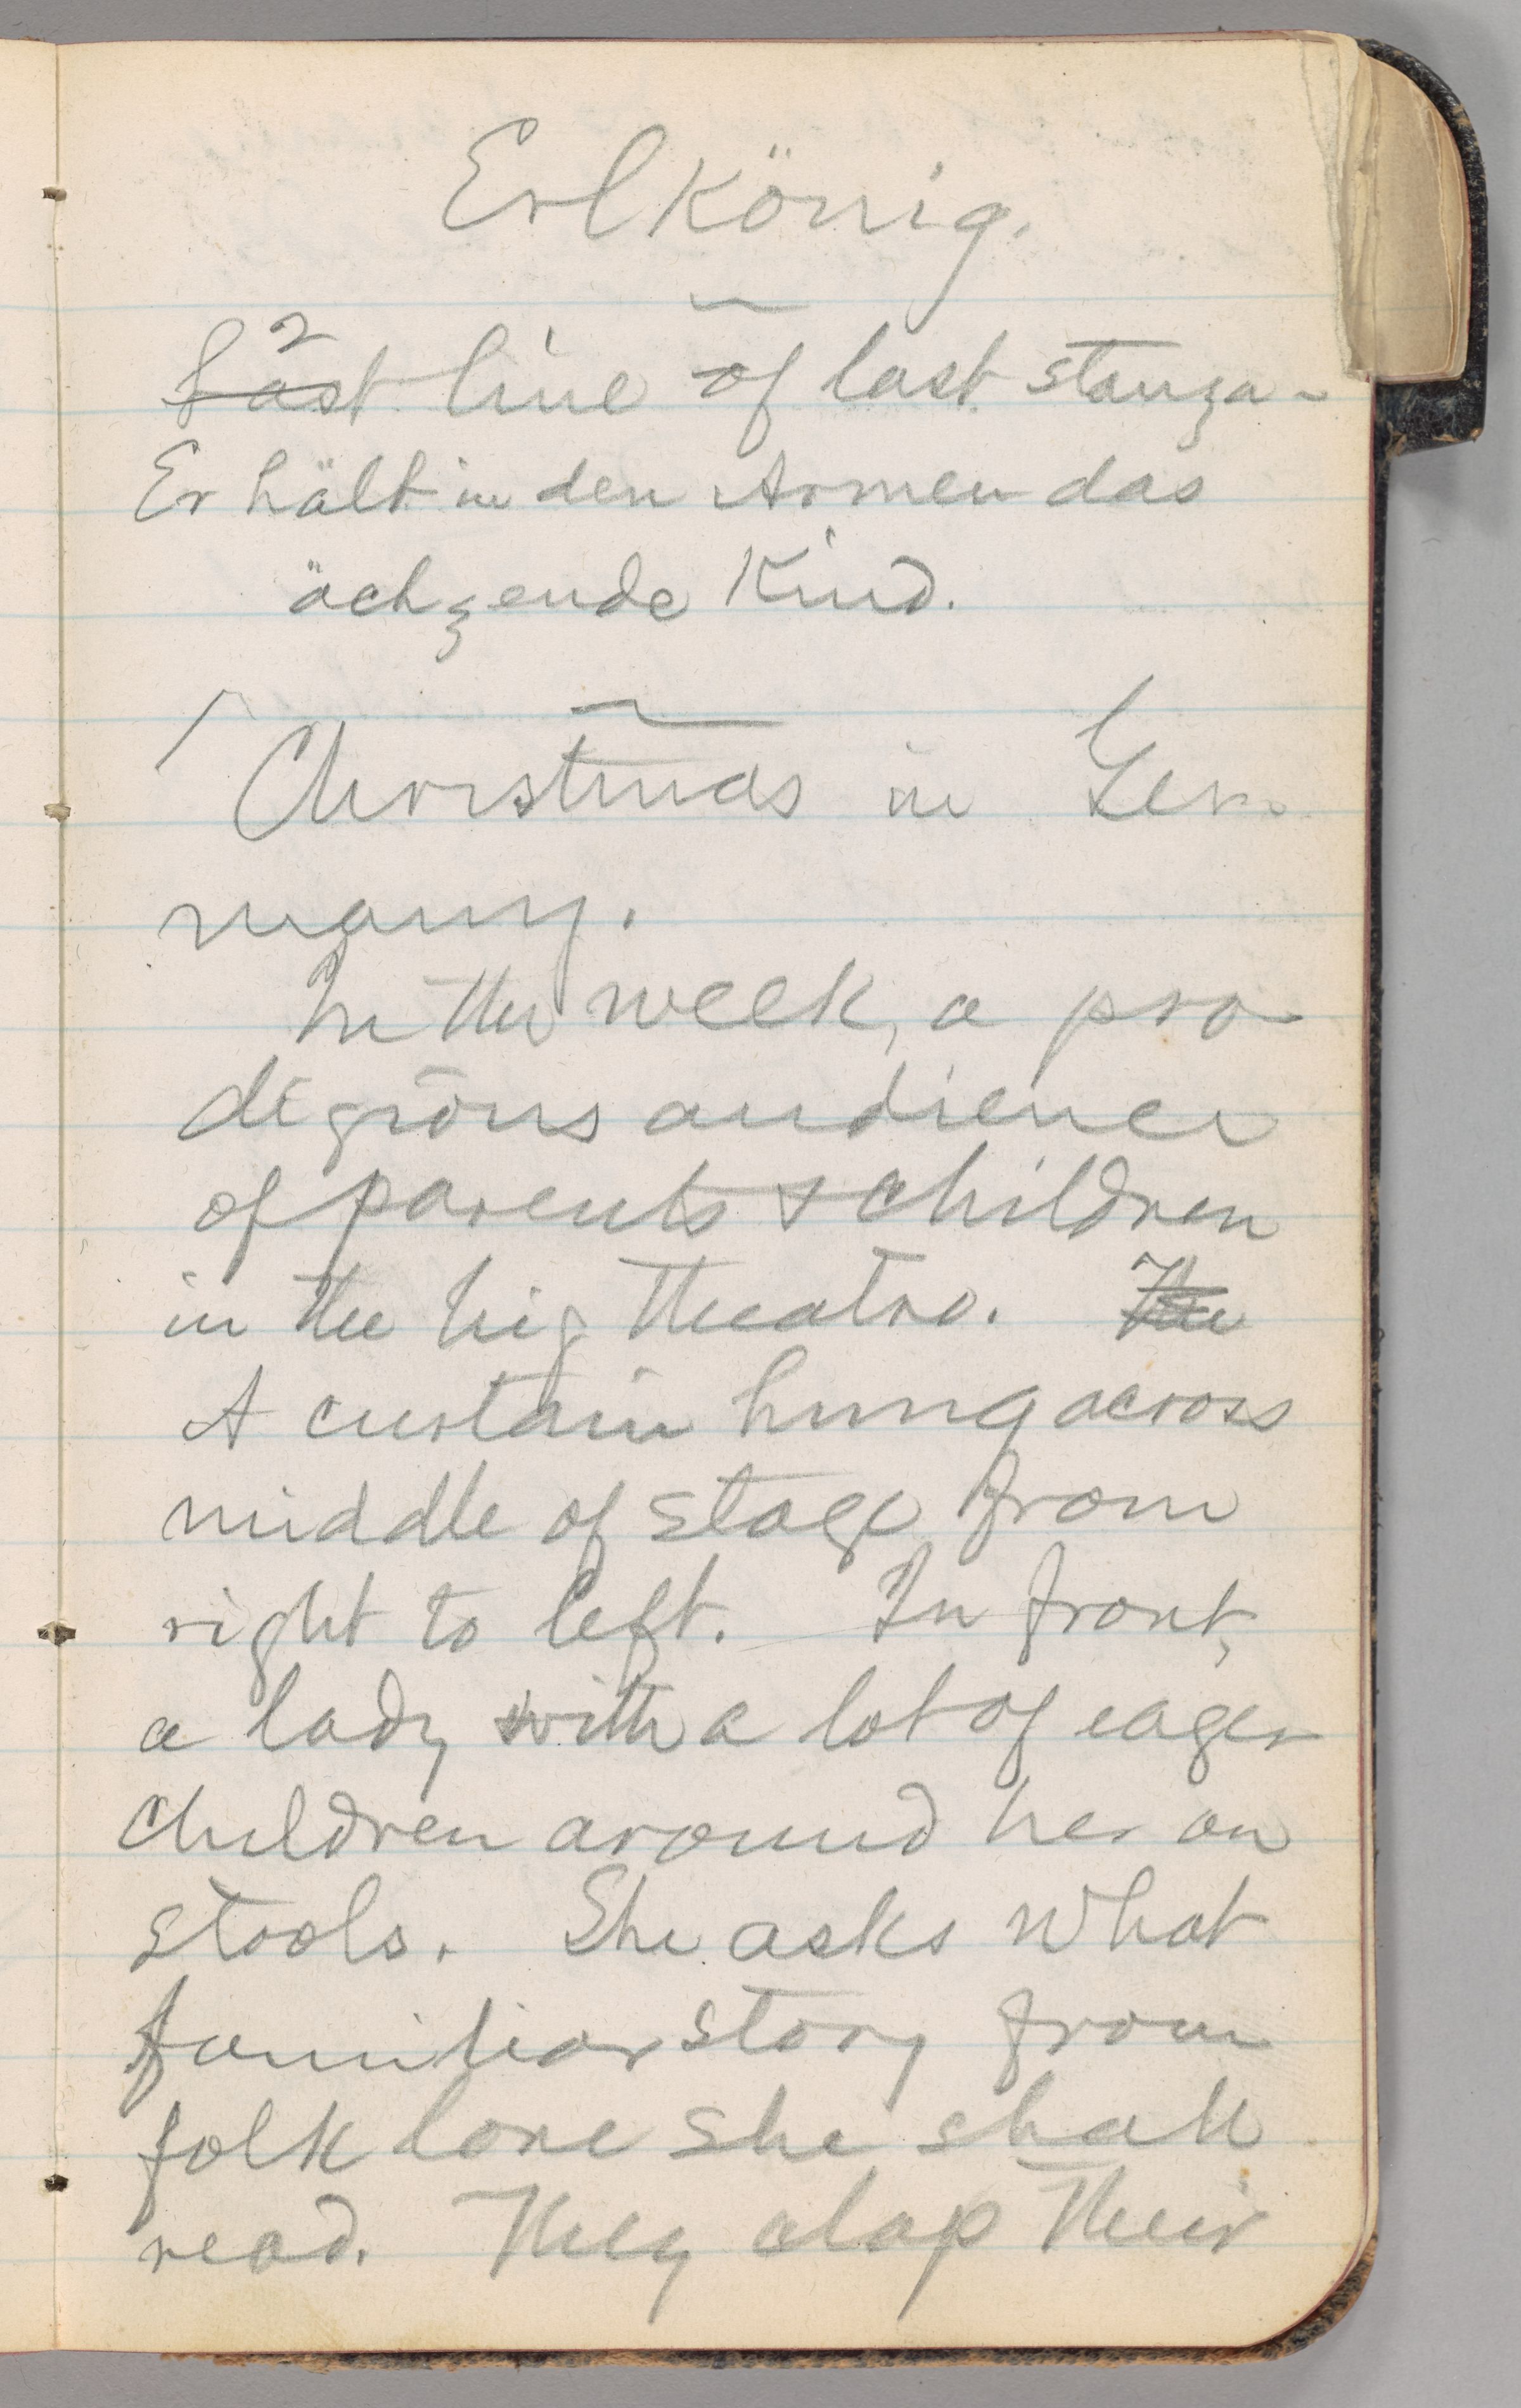 Erlkönig.
2
Last line of last stanza-
Er hält in den Armen das
ächzende Kind.
Christmas in Ger-
many.
In the week, a pro-
digious audience
of parents & children
in the big theatre. The
A curtain hung across
middle of stage from
right to left. In front,
a lady with a lot of eager
children around her on
stools. She asks what
familiar story from
folk lore she shall
read. They clap their